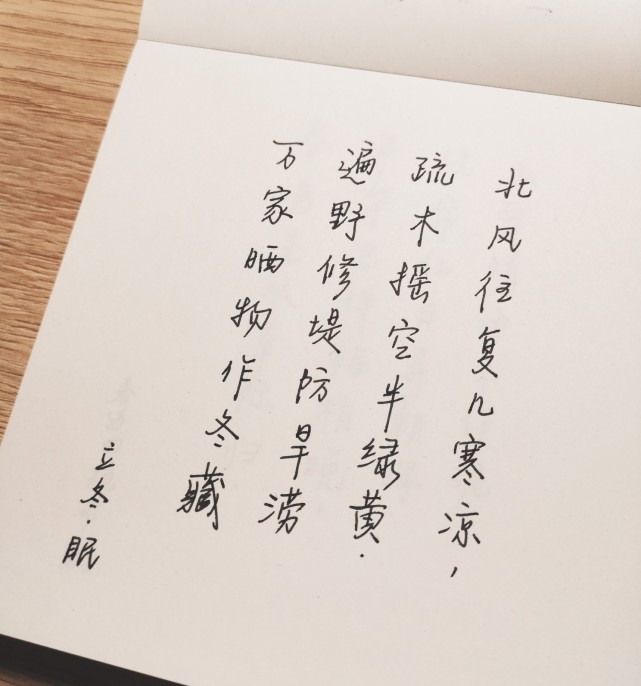 北风往复几寒凉,
疏木摇空半绿黄.
遍野修堤防旱涝
万家晒物作冬藏
立冬·眠